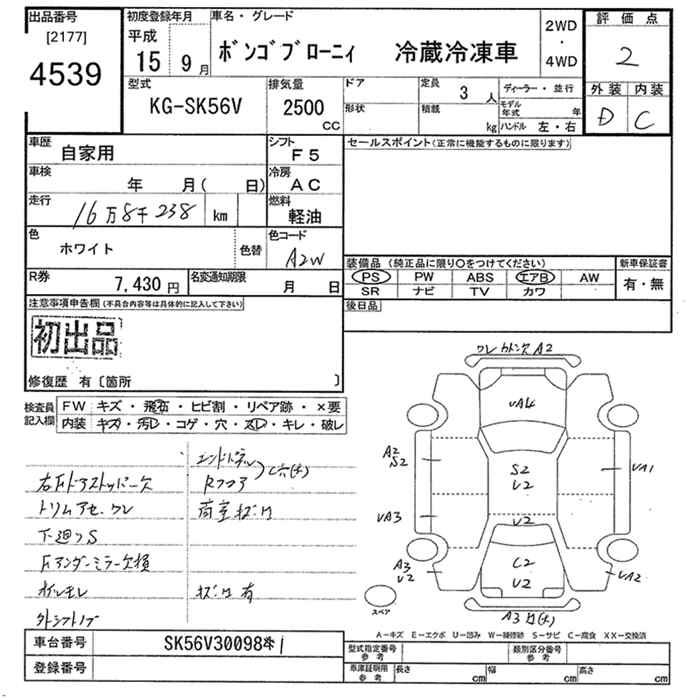 出品番号
[2177]
4539
初度登録年月
平成
15年 9月
車名・グレード
ボンゴブローニィ 冷蔵冷凍車
2WD
・
4WD
評価点
2
外装 内装
D C
型式
KG-SK56V
排気量
2500
CC
ドア
形状
定員
3人
積載
kg
ディーラー・並行
モデル年式 年
ハンドル 左・右
車歴
自家用
シフト
F5
セールスポイント(正常に機能するものに限ります)
車検
年 月( 日)
冷房
AC
走行
16万8千238 km
燃料
軽油
色
ホワイト
色替
色コード
A2W
装備品 (純正品に限り○をつけてください)
新車保証書
PS PW ABS エアB AW
有・無
SR ナビ TV カワ
R券
7,430円
名変通知期限
月 日
後日品
注意事項申告欄(不具合内容等は具体的に記入して下さい)
初出品
修復歴 有〔箇所 〕
検査員記入欄
FW キズ・飛石・ヒビ割・リペア跡・×要
内装 キズ・汚レ・コゲ・穴・スレ・キレ・破レ
エンドパネル
右Fドアストッパー欠
Rフロア
トリムアセ、ワレ
荷室サビ
下廻りS
Fアンダーミラー欠損
オイルモレ
サビ有
外シフトノブ
A2
VA4
A2
S2
S2
V2
VA1
VA3
V2
A3
V2
C2
V2
VA2
A3
スペア
A-キズ E-エクボ U-凹み W-補修跡 S-サビ C-腐食 XX-交換済
車台番号
SK56V300984
登録番号
型式指定番号
参考
類別区分番号
参考
車庫証明用
参考
長さ cm
幅 cm
高さ cm